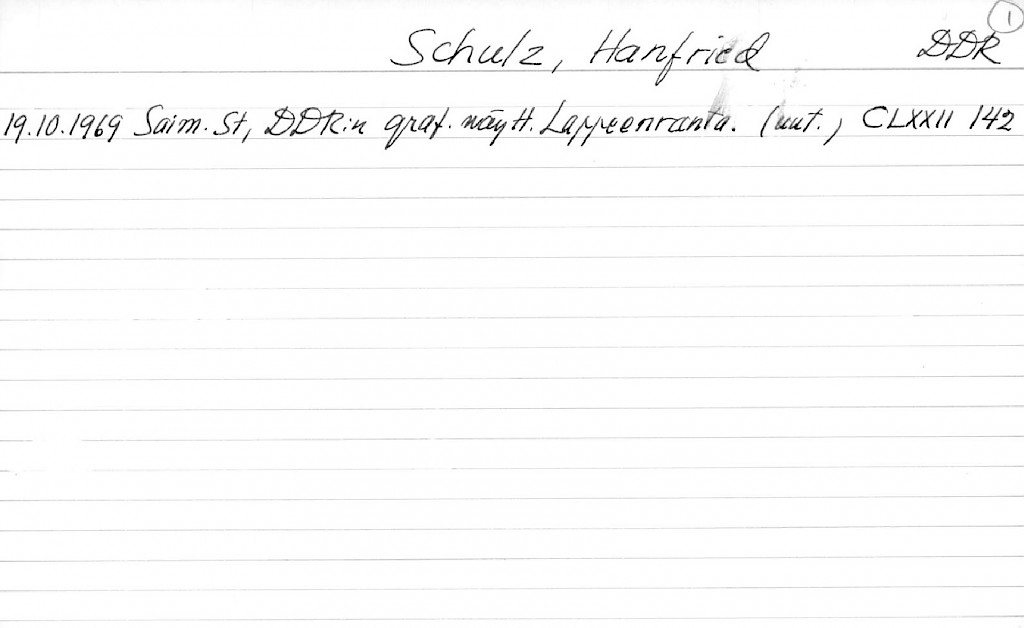 1
Schulz, Hanfried DDR
19.10.1969 Saim. St, DDR:n graf. näytt. Lappeenranta. (uut.) CLXXII 142